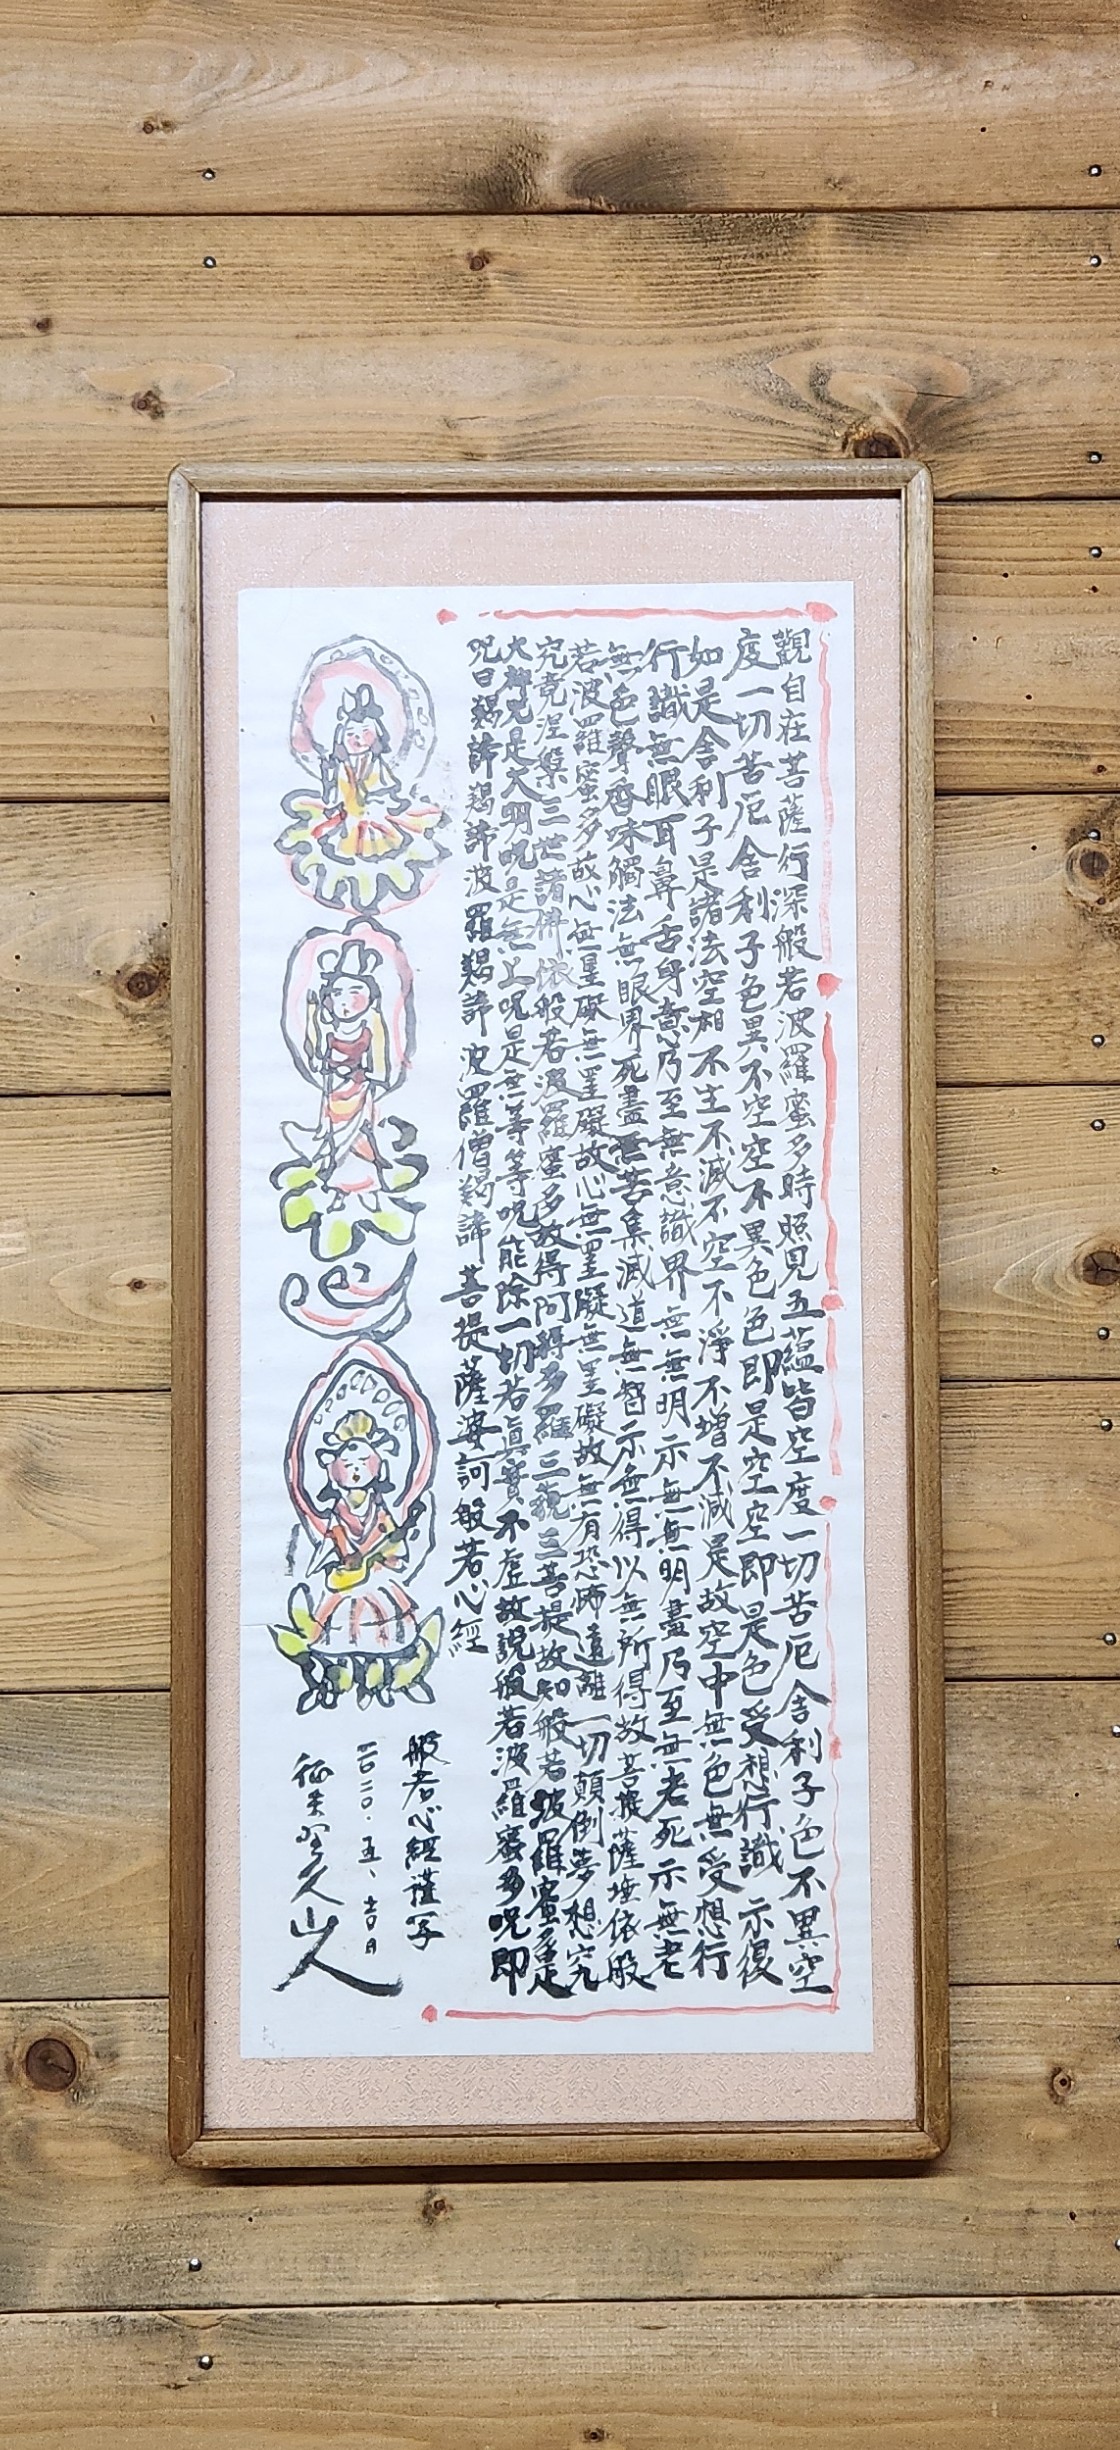 觀自在菩薩行深般若波羅蜜多時照見五蘊皆空度一切苦厄舍利子色不異空
度一切苦厄舍利子色異不空空不異色色即是空空即是色受想行識示復
如是舍利子是諸法空相不生不滅不空不淨不增不減是故空中無色無受想行
行識無眼耳鼻舌身意乃至無意識界無無明示無無明盡乃至無老死示無老
無色聲香味觸法無眼界死盡無苦集滅道無智示無得以無所得故菩提薩埵依般
若波羅蜜多故心無罣礙無罣礙故心無罣礙無罣礙故無有恐怖遠離一切顛倒夢想究
究竟涅槃三世諸佛依般若波羅蜜多故得阿耨多羅三藐三菩提故知般若波羅蜜多是
大神咒是大明呪是無上呪是無等等呪能除一切苦眞實不虛故説般若波羅蜜多呪即
呪曰羯諦羯諦波羅羯諦波羅僧羯諦菩提薩婆訶般若心經
般若心經謹写
二〇二〇.五、十日
山人